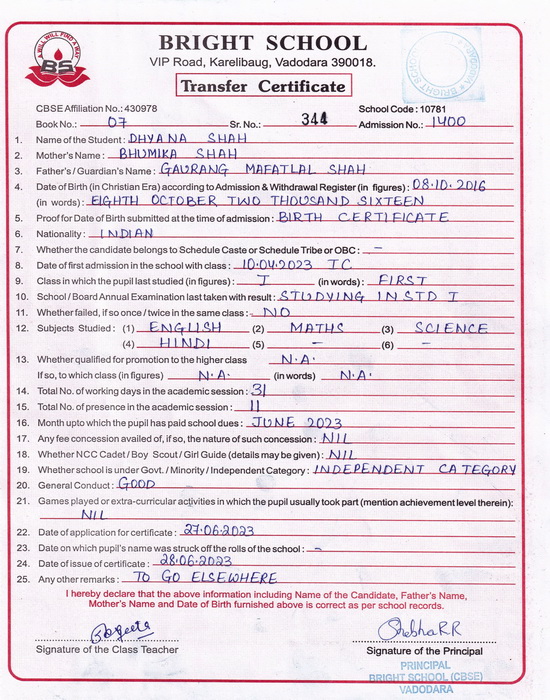 A WILL WILL FIND A WAY
BS
BRIGHT SCHOOL
VIP Road, Karelibaug, Vadodara 390018.
Transfer Certificate
CBSE Affiliation No.: 430978 School Code : 10781
Book No.: 07 Sr. No.: 344 Admission No.: 1400
1. Name of the Student : DHYANA SHAH
2. Mother's Name : BHUMIKA SHAH
3. Father's / Guardian's Name : GAURANG MAFATLAL SHAH
4. Date of Birth (in Christian Era) according to Admission & Withdrawal Register (in figures) : 08.10.2016
(in words) : EIGHTH OCTOBER TWO THOUSAND SIXTEEN
5. Proof for Date of Birth submitted at the time of admission : BIRTH CERTIFICATE
6. Nationality : INDIAN
7. Whether the candidate belongs to Schedule Caste or Schedule Tribe or OBC : –
8. Date of first admission in the school with class : 10.04.2023 TC
9. Class in which the pupil last studied (in figures) : I (in words) : FIRST
10. School / Board Annual Examination last taken with result : STUDYING IN STD I
11. Whether failed, if so once / twice in the same class : NO
12. Subjects Studied : (1) ENGLISH (2) MATHS (3) SCIENCE
(4) HINDI (5) – (6) –
13. Whether qualified for promotion to the higher class N.A.
If so, to which class (in figures) N.A. (in words) N.A.
14. Total No. of working days in the academic session : 31
15. Total No. of presence in the academic session : 11
16. Month upto which the pupil has paid school dues : JUNE 2023
17. Any fee concession availed of, if so, the nature of such concession : NIL
18. Whether NCC Cadet / Boy Scout / Girl Guide (details may be given) : NIL
19. Whether school is under Govt. / Minority / Independent Category : INDEPENDENT CATEGORY
20. General Conduct : GOOD
21. Games played or extra-curricular activities in which the pupil usually took part (mention achievement level therein) :
NIL
22. Date of application for certificate : 27.06.2023
23. Date on which pupil's name was struck off the rolls of the school : –
24. Date of issue of certificate : 28.06.2023
25. Any other remarks : TO GO ELSEWHERE
I hereby declare that the above information including Name of the Candidate, Father's Name,
Mother's Name and Date of Birth furnished above is correct as per school records.
Signature of the Class Teacher Signature of the Principal
PRINCIPAL
BRIGHT SCHOOL (CBSE)
VADODARA